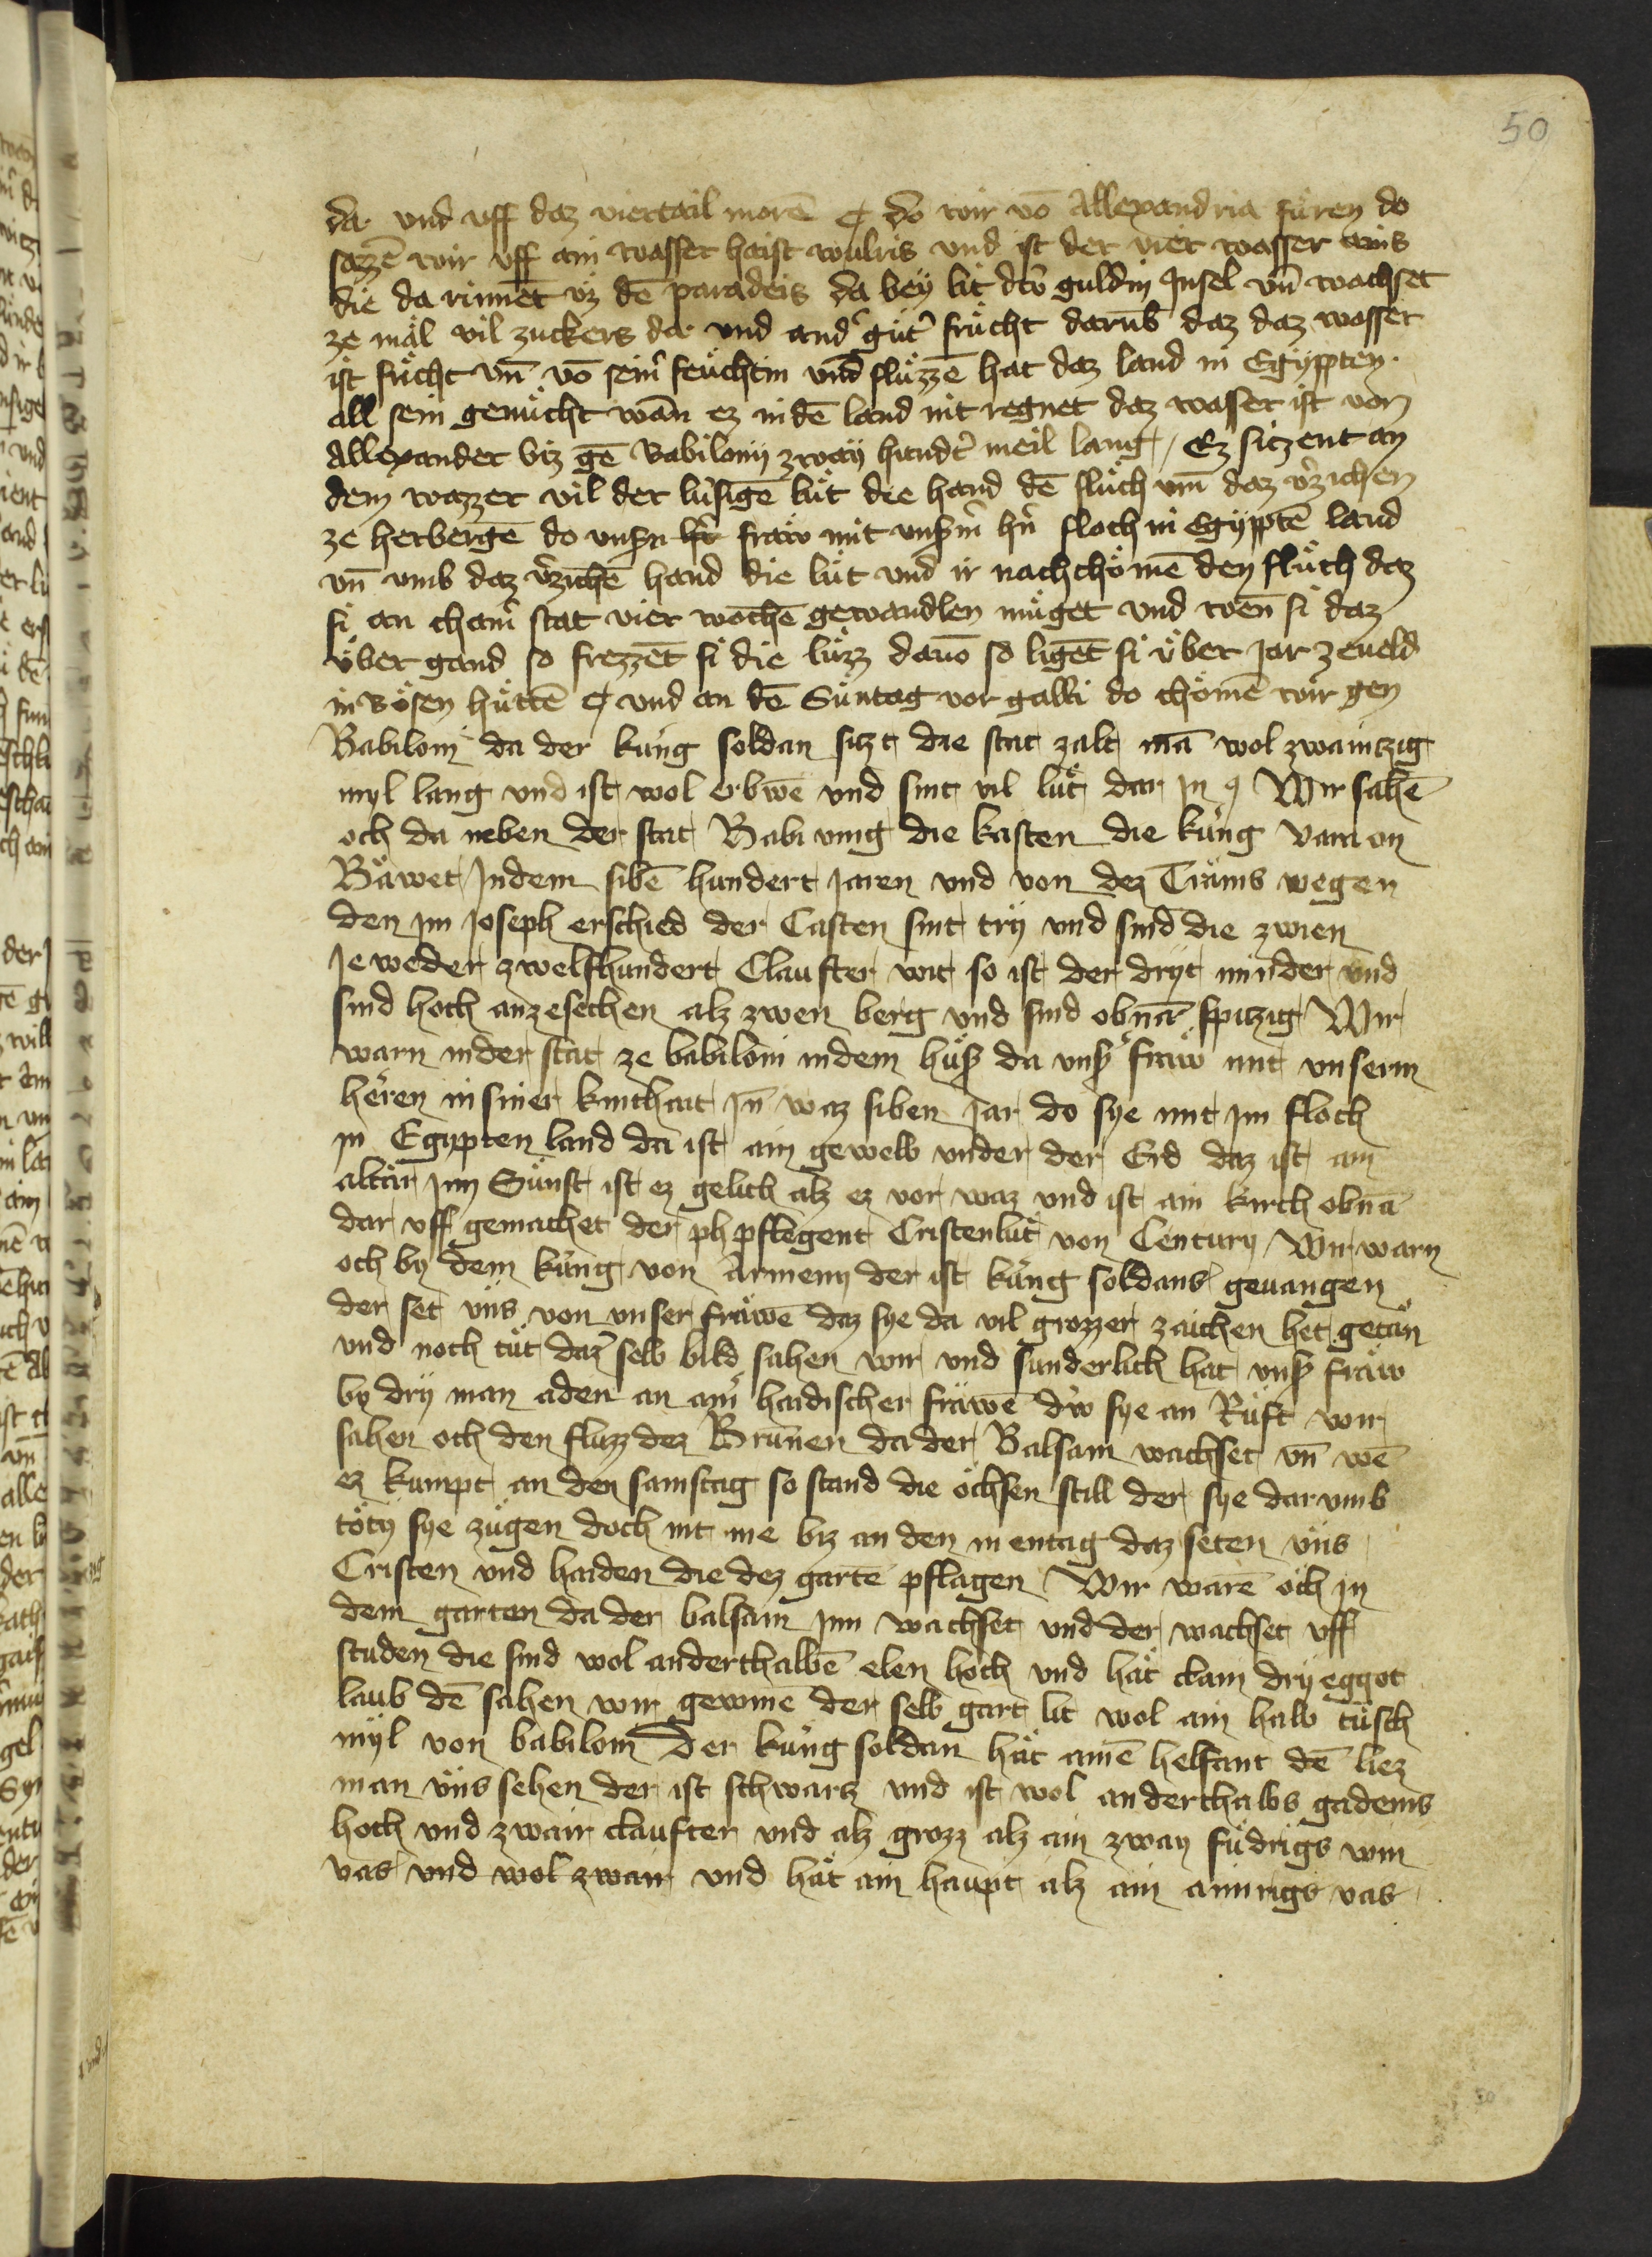 50
da und uff daz viertail morē ¶ do wir vō Allexandria fuͤren do
sazzē wir uff ain wasser haist wulris und ist der vier wasser ains
die da rinnēt uz dē paradeis da beÿ lit dw̓ guldin Jnsel uñ wachset
ze māl vil zuckers da und and̓ guͤt̓ frücht darūb daz daz wasser
ist fücht uñ vō seim̓ feüchtin und flüzzē hat daz land in Egÿpten
all sein genücht wan̄ ez in dē land nit regnet daz wasser ist von
Allexander biz gē Babilonÿ zwaÿ hundt̓ meil lang / Ez sitzent an
dem wazzer vil der lüsigē lüt die hand dē flüch um̄ daz v̓zichen
ze herbergē do unßn fraw mit unßm̓ hn̓ floch in Egÿptē land
uñ umb daz v̓zichē hand die lüt und ir nachchömē den flüch daz
si an cham̓ stat vier wochē gewandlen müget und wen̄ si daz
über gand so frezzēt si die lüzz dauō so ligēt si über Jar ze ueld
in bösen hüttē ¶ und an dē Süntag vor galli do chömē wir gen
Babiloni da der küng soldan sitzt die stat zalt mā wol zwaintzig
myl lang und ist wol erbwē und sint vil lüt dar Jn Wir sahē
och da neben der stat Babi die kasten die küng varaon
Bäwet Jndem sibē hundert Jaren und von dez Träms wegen
den Jm Joseph erschied der Casten sint trÿ und sind die zwien
Jeweder zwelfhundert Claufter wit so ist der drÿt minder und
sind hoch anzesechen alz zwen berg und sind obnā spitzig Wir
warn in der stat ze babiloni in dem huß da unß fraw mit unserm
heren in siner kinthait Jn̄ waz siben Jar do sye mit Jm floch
in Egypten land da ist ain gewelb under der Erd daz ist ain
altär Jnn Sünst ist ez gelich alz ez vor waz und ist ain kirch obnā
dar uff gemachet der pflegent Cristenlüt von Century / Wir warn
och by dem küng von Armeny der ist küng soldans geuangen
der set üns von unser fräwē daz sye da vil grozzer zaichen het getän
und noch tüt daz selb bild sahen wir und sunderlich hat unß fräw
by drÿ man aden an ain̓ haidischer fräwē dw̓ sye an Rüft wir
sahen och den fluzz dez Brunen da der Balsam wachset uñ wē
ez kumpt an den samstag so stand die öchsen still der sye darumb
töty sye zügen doch nit me biz an den mentag daz seten üns
Cristen und haiden die dez gartē pflagen Wir warē och in
dem garten da der balsam Jnn wachset und der wachset uff
studen die sind wol anderthalbē elen hoch und hät clain dry eggot
laub dē sahen wir gewinē der selb gart lit wol ain halb tüsch
mÿl von babiloni Der küng soldan hät ainē helfant dē liez
man üns sehen der ist schwarz und ist wol anderthalbs gadems
hoch und zwair claufter und alz grozz alz ain zway füdrigs win
vas und wol zwair und hät ain haupt alz ain aimrigs vas
50